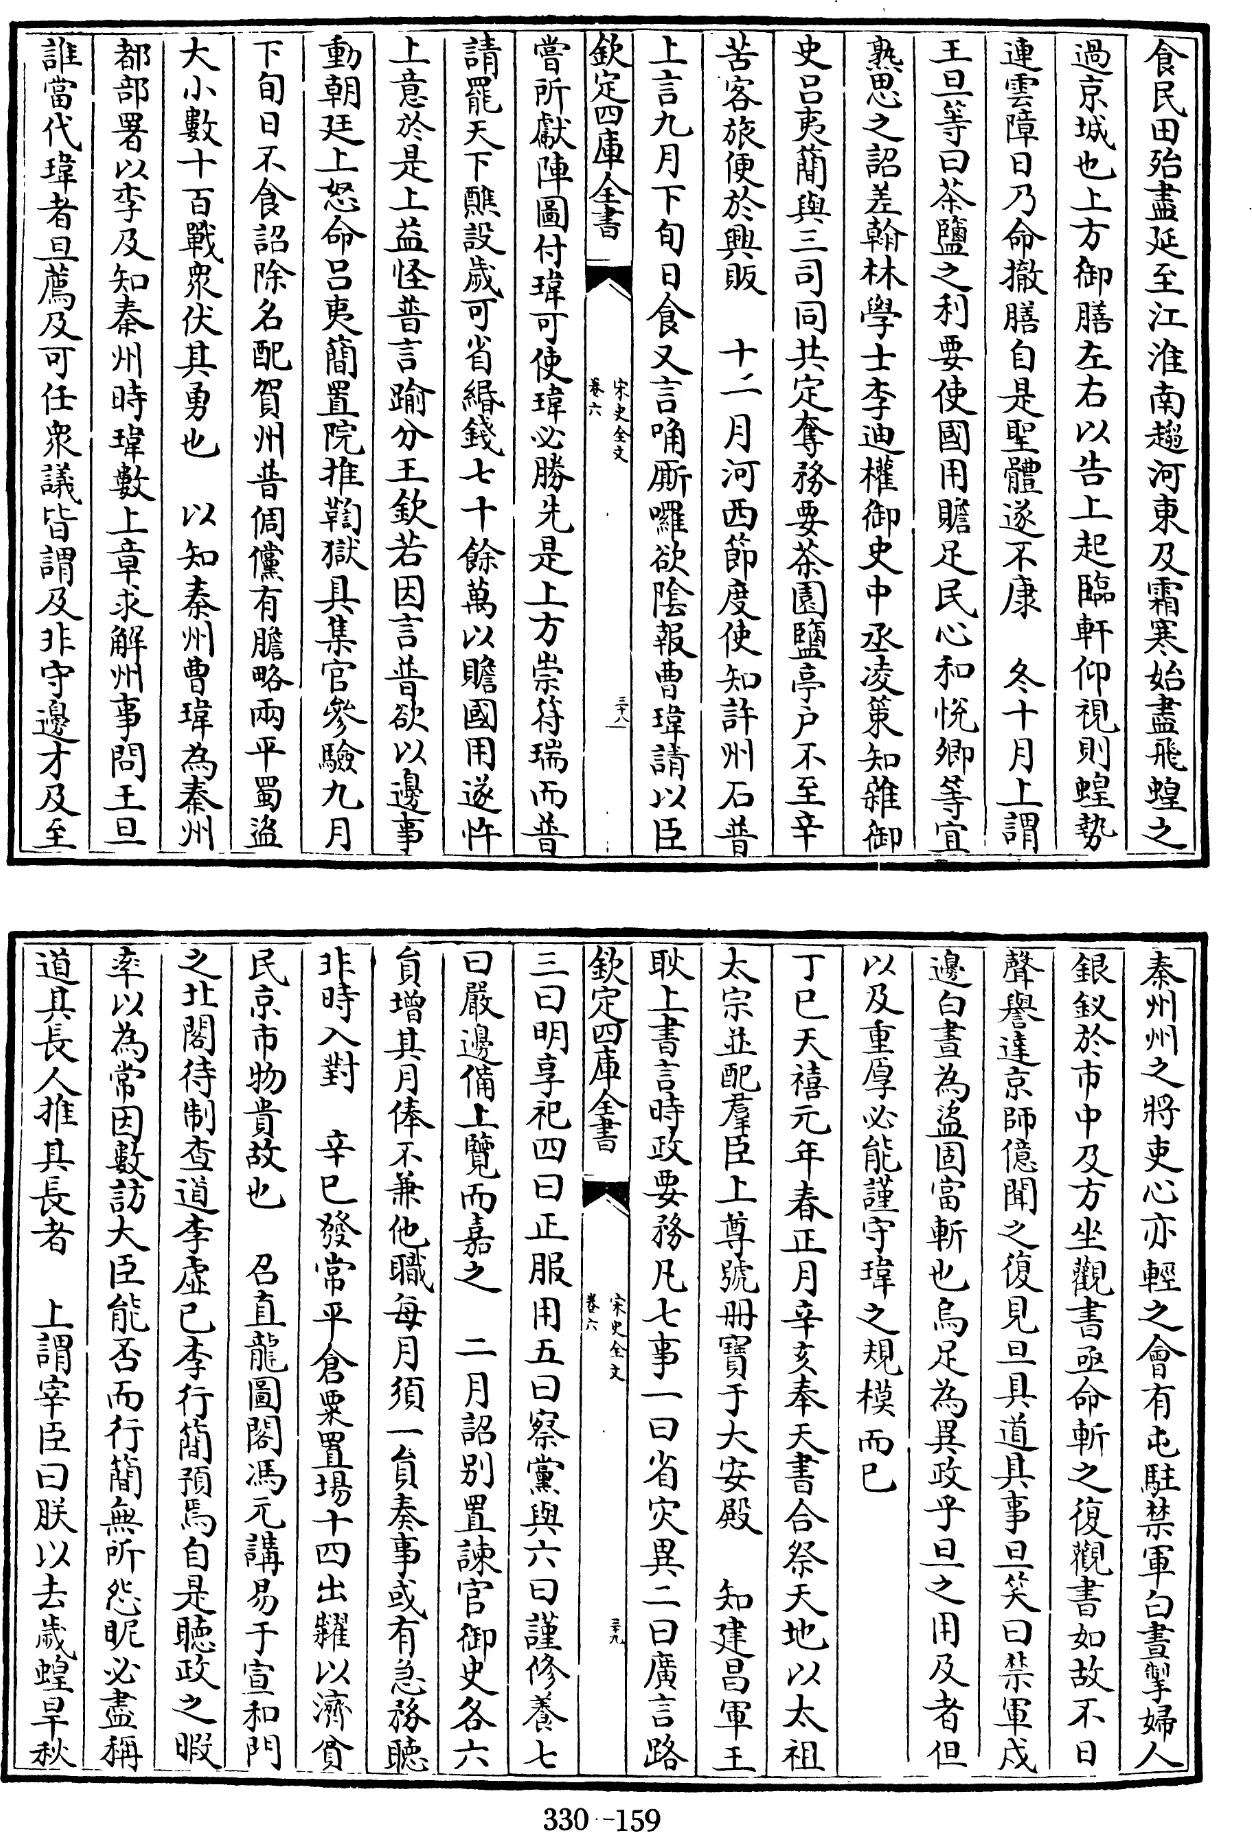 食民田殆盡延至江淮南趨河東及霜寒始盡飛蝗之
過京城也上方御膳左右以告上起臨軒仰視則蝗勢
連雲障日乃命撤膳自是聖體遂不康　冬十月上謂
王旦等曰茶鹽之利要使國用贍足民心和悅卿等宜
熟思之詔差翰林學士李迪權御史中丞凌策知雜御
史呂夷簡與三司同共定奪務要茶園鹽亭户不至辛
苦客旅便於興販　十二月河西節度使知許州石普
上言九月下旬日食又言唃厮囉欲陰報曹瑋請以臣
欽定四庫全書
宋史全文
卷六
三十八
嘗所獻陣圖付瑋可使瑋必勝先是上方崇符瑞而普
請罷天下醮設歲可省緡錢七十餘萬以贍國用遂忤
上意於是上益怪普言踰分王欽若因言普欲以邊事
動朝廷上怒命呂夷簡置院推鞫獄具集官參驗九月
下旬日不食詔除名配賀州普倜儻有膽略兩平蜀盜
大小數十百戰衆伏其勇也　以知秦州曹瑋為秦州
都部署以李及知秦州時瑋數上章求解州事問王旦
誰當代瑋者旦薦及可任衆議皆謂及非守邊才及至
秦州州之將吏心亦輕之會有屯駐禁軍白晝掣婦人
銀釵於市中及方坐觀書亟命斬之復觀書如故不日
聲譽達京師億聞之復見旦具道其事旦笑曰禁軍戍
邊白晝為盜固當斬也烏足為異政乎旦之用及者但
以及重厚必能謹守瑋之規模而已
丁巳天禧元年春正月辛亥奉天書合祭天地以太祖
太宗並配羣臣上尊號冊寶于大安殿　知建昌軍王
耿上書言時政要務凡七事一曰省灾異二曰廣言路
欽定四庫全書
宋史全文
卷六
三十九
三曰明享祀四曰正服用五曰察黨與六曰謹修養七
曰嚴邊備上覽而嘉之　二月詔別置諫官御史各六
員增其月俸不兼他職每月須一員奏事或有急務聽
非時入對　辛巳發常平倉粟置場十四出糶以濟貧
民京市物貴故也　召直龍圖閣馮元講易于宣和門
之北閣待制查道李虛已李行簡預焉自是聽政之暇
率以為常因數訪大臣能否而行簡無所怨昵必盡稱
道其長人推其長者　上謂宰臣曰朕以去歲蝗旱秋
330--159